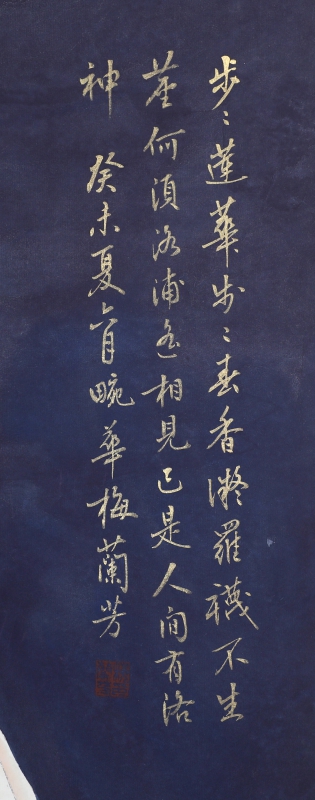 步〻蓮華步〻春香濺羅襪不生
塵何須洛浦遙相見已是人間有洛
神 癸未夏六月畹華梅蘭芳